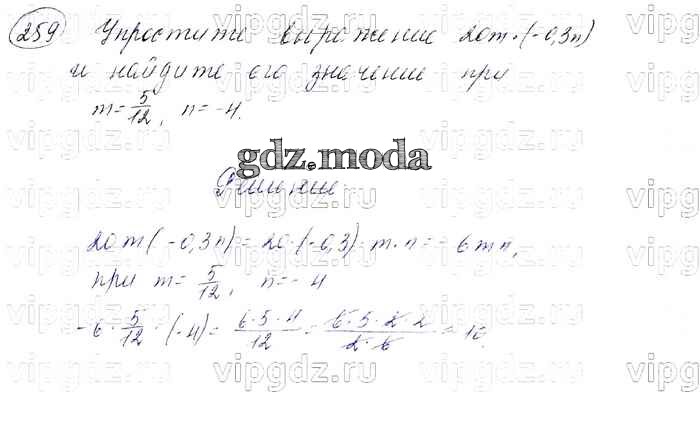 259 Упростите выражение 20m·(-0,3n)
и найдите его значение при
m= 5/12, n=-4.
gdz.moda
Решение
20m(-0,3n)=20·(-0,3)·m·n=-6mn,
при m= 5/12, n=-4
-6· 5/12 ·(-4)= 6·5·4/12 = 6·5·2·2/2·6 = 10.
vipgdz.ru